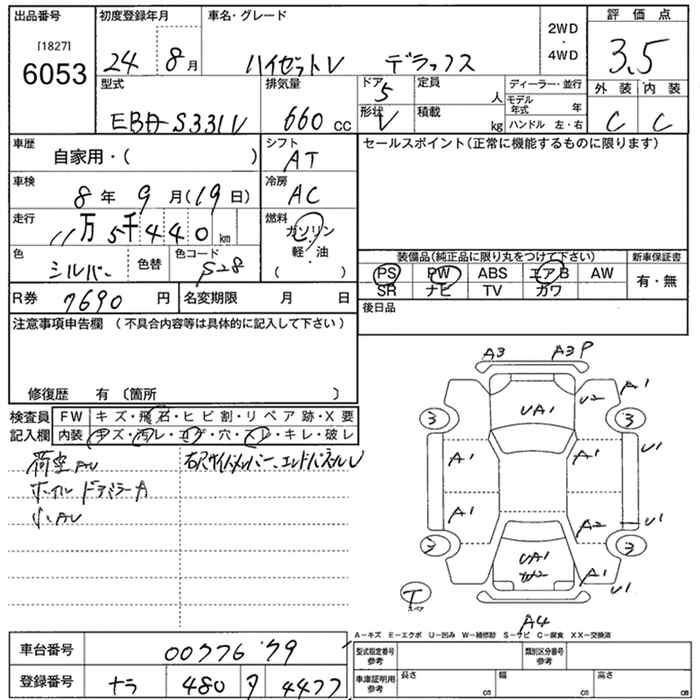 出品番号 初度登録年月 車名・グレード 2WD・4WD 評価点
[1827]
6053 24 8月 ハイゼットV デラックス 3.5
型式 排気量 ドア 5 定員 人 ディーラー・並行 外装 内装
EBA-S331V 660cc 形状 V 積載 kg モデル年式 年 C C
ハンドル 左・右
車歴 自家用・( ) シフト AT セールスポイント(正常に機能するものに限ります)
車検 8年 9月(19日) 冷房 AC
走行 11万5千440km 燃料 ガソリン 軽・油 ( )
色 シルバー 色替 色コード S28
装備品(純正品に限り丸をつけて下さい) 新車保証書
PS PW ABS エアB AW 有・無
SR ナビ TV カワ
R券 7690円 名変期限 月 日 後日品
注意事項申告欄 (不具合内容等は具体的に記入して下さい)
修復歴 有〔箇所 〕
検査員 FW キズ・飛石・ヒビ割・リペア跡・X要
記入欄 内装 キズ・汚レ・コゲ・穴・スレ・キレ・破レ
荷室AU
ホイル ドアミラーA
小AU
A3 A3 P
UA1 U2 A1
3 3
A1 A1 U1
A1 A2 U1
3 3
UA1 W2 A1 U1
T
A4
A-キズ E-エクボ U-凹み W-補修跡 S-サビ C-腐食 XX-交換済
車台番号 0077679 型式指定番号 参考 類別区分番号
登録番号 ナラ 480 4477 車庫証明用 参考 長さ cm 幅 cm 高さ cm